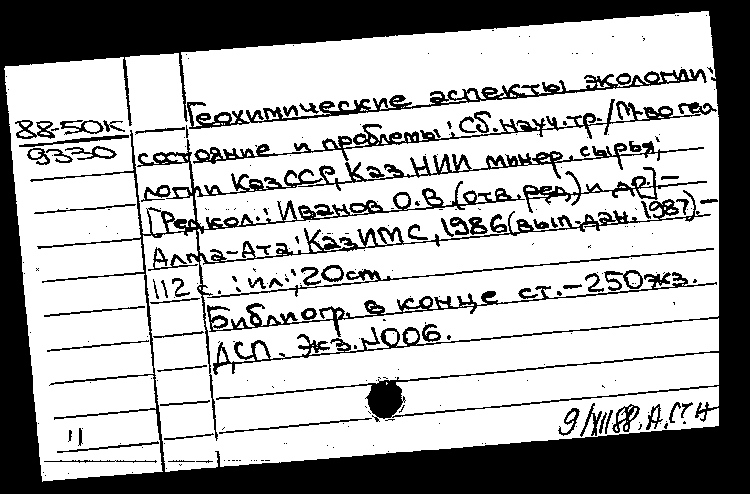 88-50К
9330
Геохимические аспекты экологии:
состояние и проблемы: Сб. науч. тр./М-во гео
логии КазССР, Каз. НИИ минер. сырья;
[Редкол.: Иванов О.В. (отв. ред.) и др.].-
Алма-Ата: КазИМС, 1986 (вып. дан. 1987).-
112 с. : ил.; 20 см.
Библиогр. в конце ст. - 250 экз.
ДСП. Экз. N006.
11
9/XII 88. А.